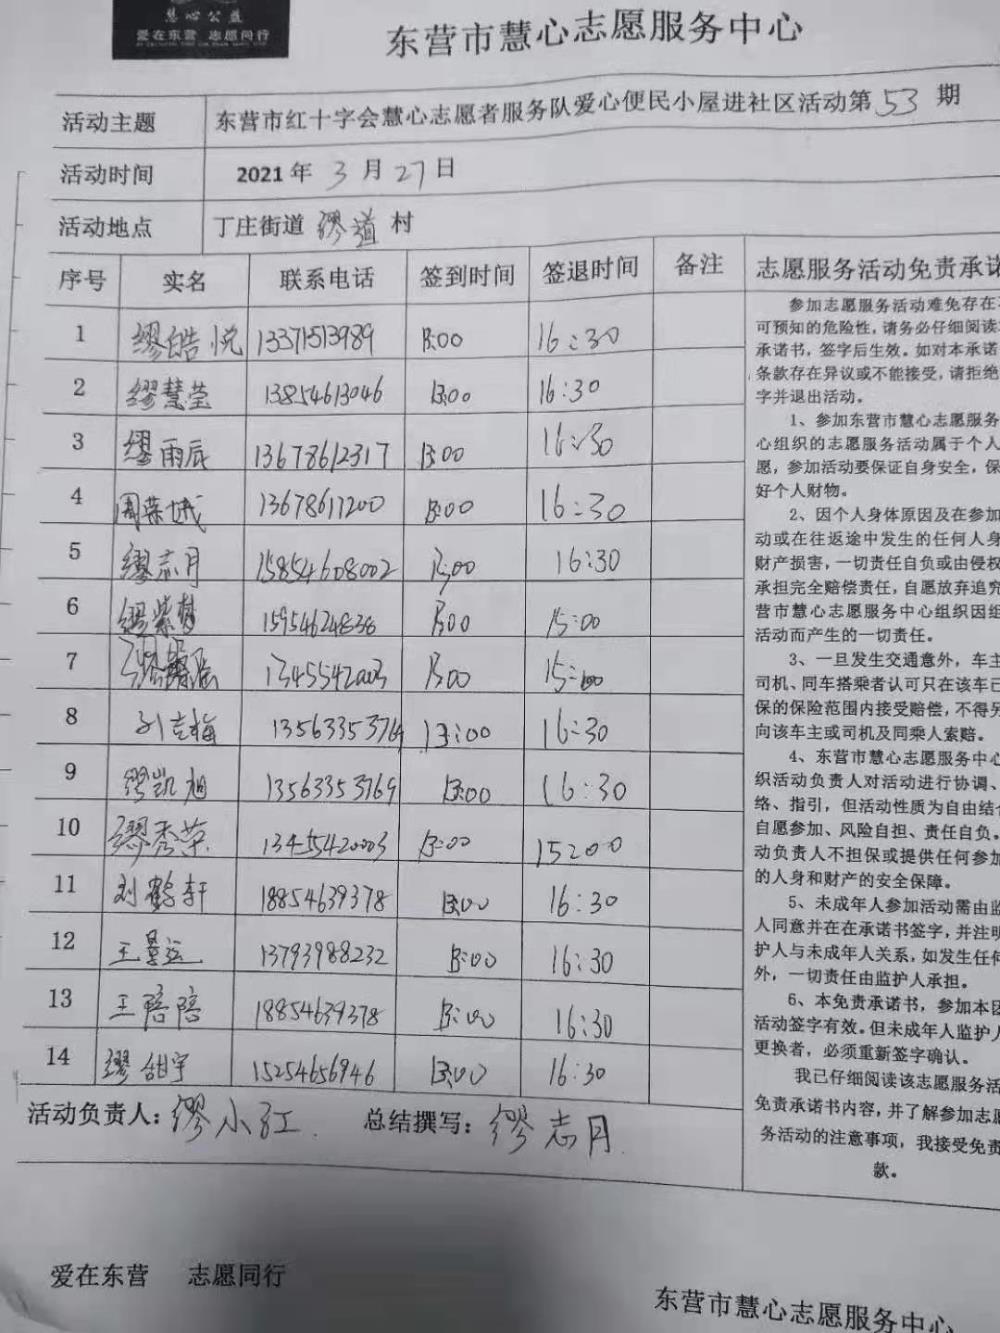 慧心公益
爱在东营 志愿同行
东营市慧心志愿服务中心
活动主题 东营市红十字会慧心志愿者服务队爱心便民小屋进社区活动第53期
活动时间 2021年3月27日
活动地点 丁庄街道缪道村
序号 实名 联系电话 签到时间 签退时间 备注
1 缪皓悦 13371513989 13:00 16:30
2 缪慧莹 13854613046 13:00 16:30
3 缪雨辰 13678612317 13:00 16:30
4 周荣娥 13678611200 13:00 16:30
5 缪志月 15854608002 13:00 16:30
6 缪紫梦 15954624838 13:00 15:00
7 13455420003 13:00 15:00
8 刘吉梅 13563353769 13:00 16:30
9 缪凯旭 13563353769 13:00 16:30
10 缪秀荣 13455420003 13:00 15:00
11 刘鹤轩 18854639378 13:00 16:30
12 王景运 13793988232 13:00 16:30
13 王陪陪 18854639378 13:00 16:30
14 缪甜宇 15254656946 13:00 16:30
活动负责人：缪小红. 总结撰写：缪志月.
志愿服务活动免责承诺
参加志愿服务活动难免存在
可预知的危险性，请务必仔细阅读
承诺书，签字后生效。如对本承诺
条款存在异议或不能接受，请拒绝
字并退出活动。
1、参加东营市慧心志愿服务
心组织的志愿服务活动属于个人
愿，参加活动要保证自身安全，保
好个人财物。
2、因个人身体原因及在参加
动或在往返途中发生的任何人身
财产损害，一切责任自负或由侵权
承担完全赔偿责任，自愿放弃追究
营市慧心志愿服务中心组织因组
活动而产生的一切责任。
3、一旦发生交通意外，车主
司机、同车搭乘者认可只在该车已
保的保险范围内接受赔偿，不得另
向该车主或司机及同乘人索赔。
4、东营市慧心志愿服务中心
织活动负责人对活动进行协调、
络、指引，但活动性质为自由结合
自愿参加、风险自担、责任自负。
动负责人不担保或提供任何参加
的人身和财产的安全保障。
5、未成年人参加活动需由监
人同意并在在承诺书签字，并注明
护人与未成年人关系，如发生任何
外，一切责任由监护人承担。
6、本免责承诺书，参加本团
活动签字有效。但未成年人监护人
更换者，必须重新签字确认。
我已仔细阅读该志愿服务活
免责承诺书内容，并了解参加志愿
务活动的注意事项，我接受免责
款。
爱在东营 志愿同行
东营市慧心志愿服务中心